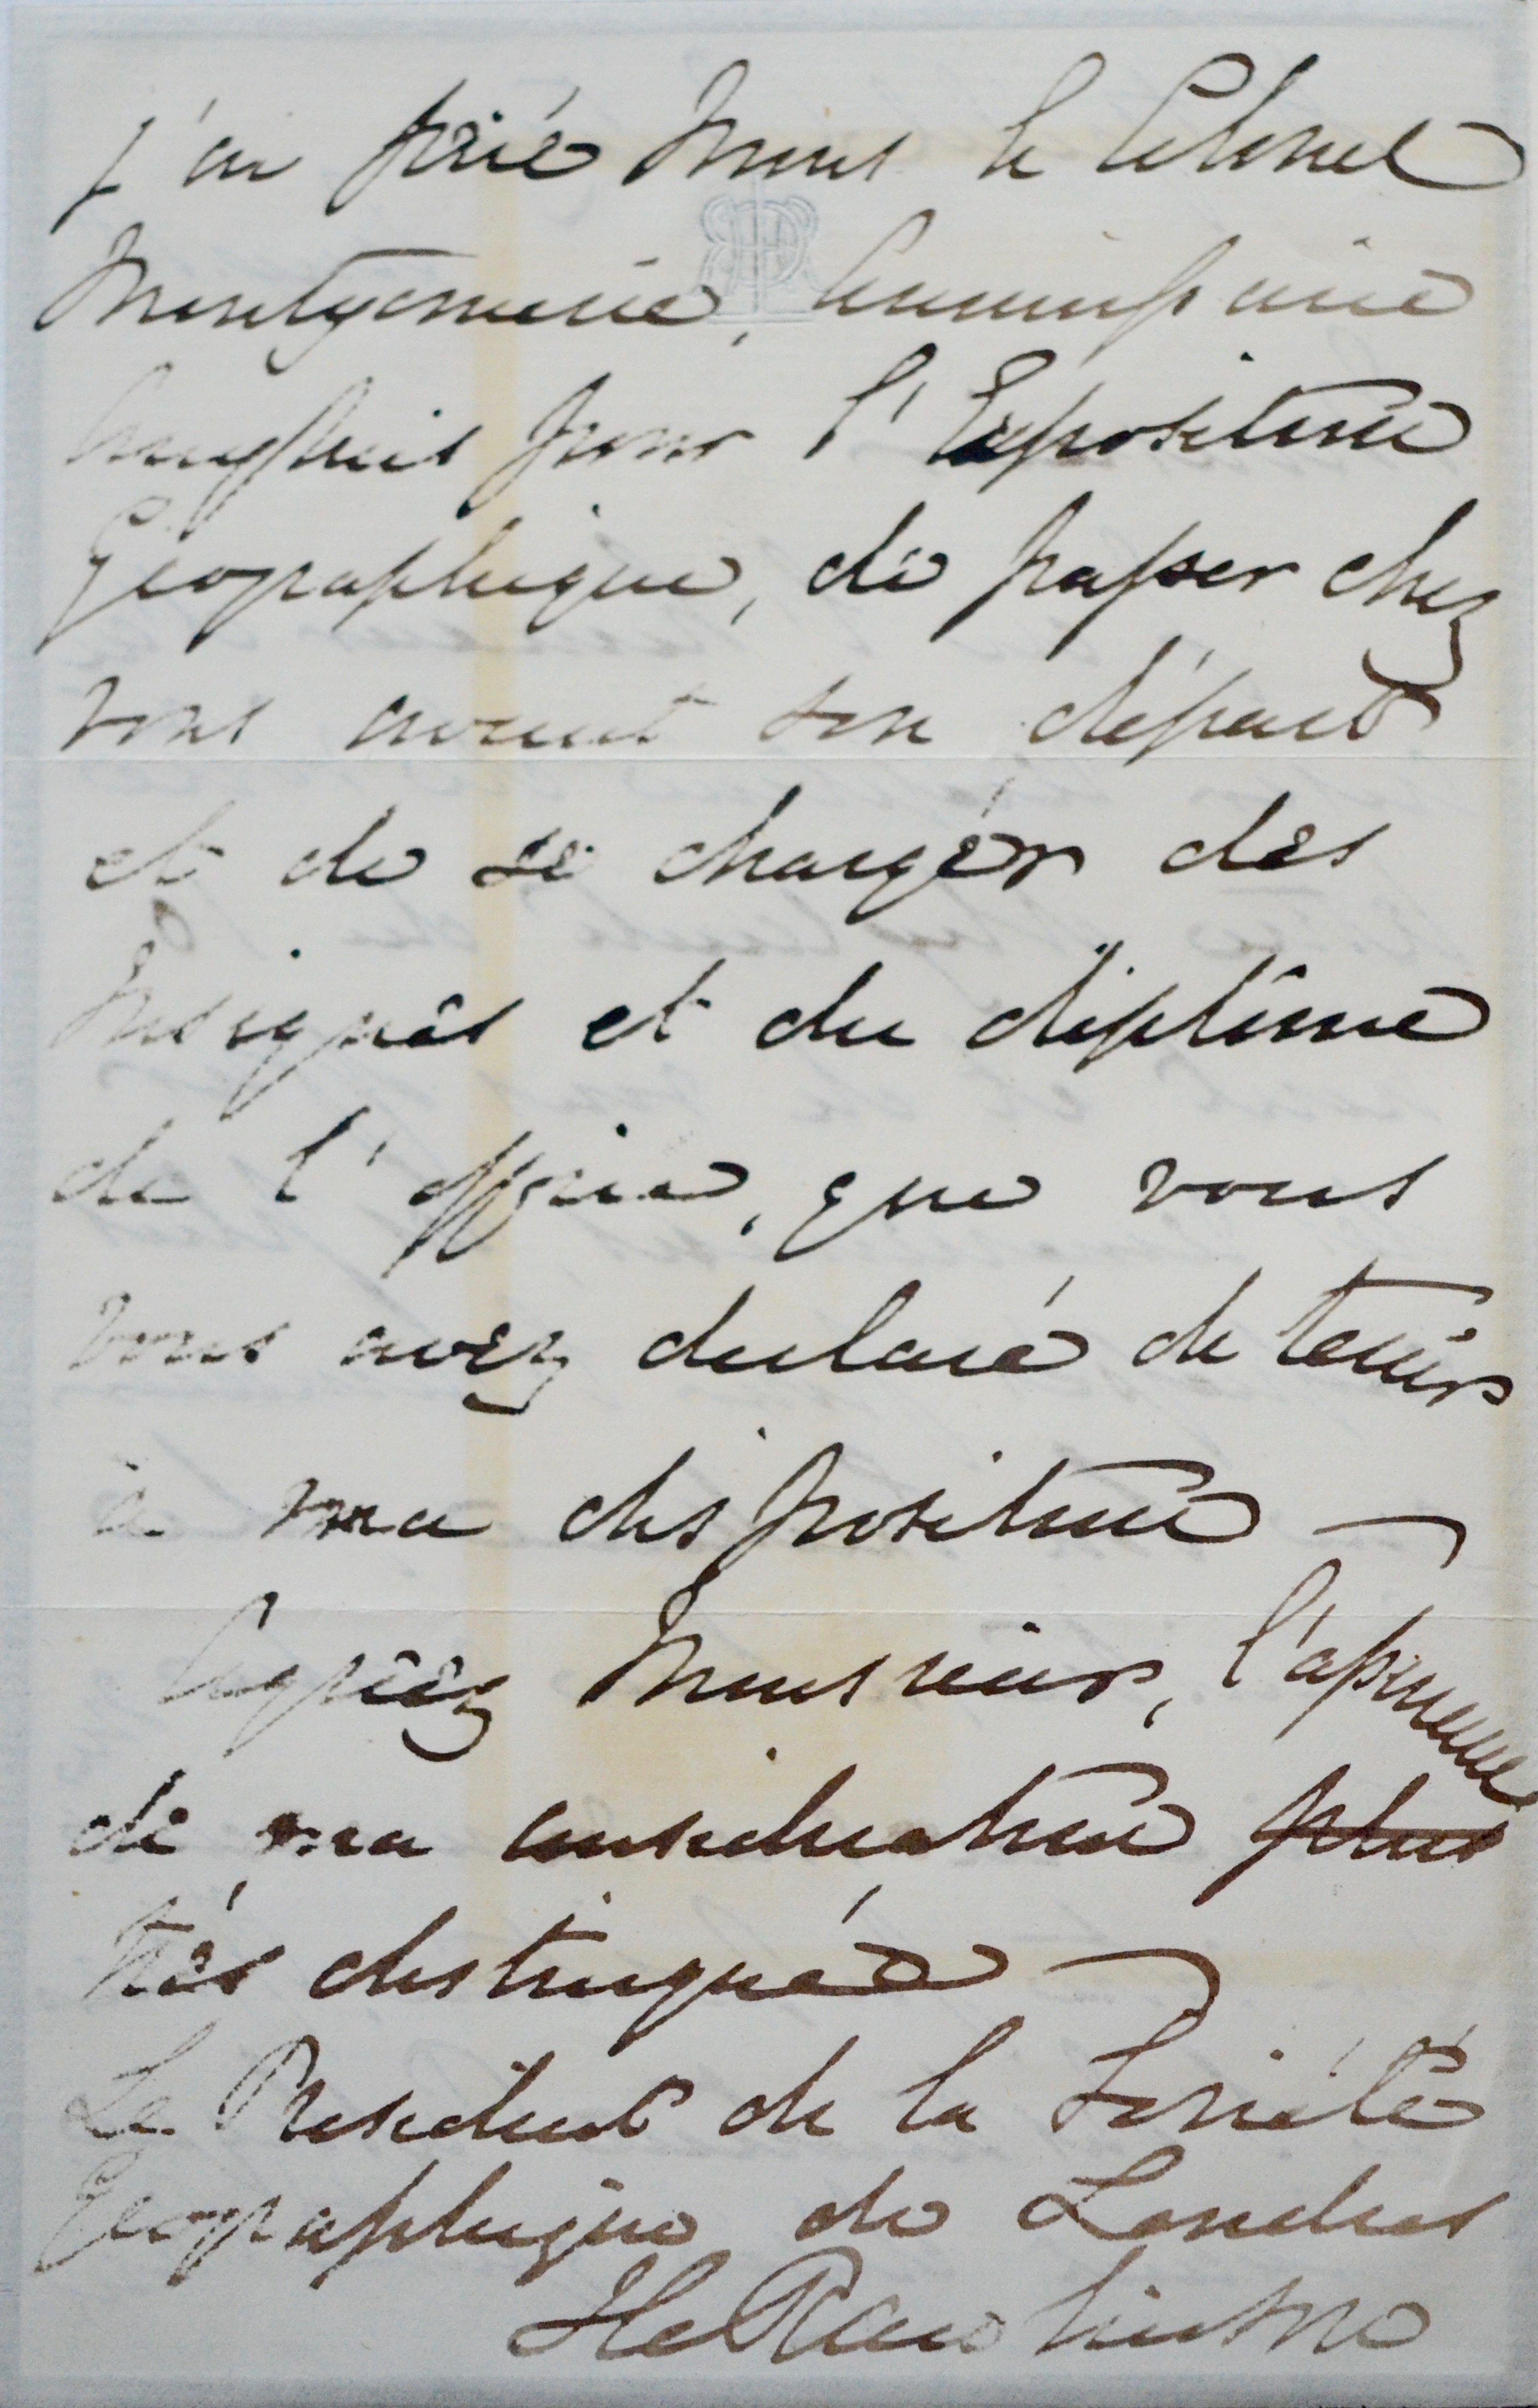 j'ai prié Mons le Colonel
Montgomerie, Commissaire
Anglais pour l'Exposition
Géographique, de passer chez
vous avant son départ
et de se charger des
Insignes et du diplôme
de l'officier, que vous
vous avez declaré de tenir
à ma disposition —
Agréez Monsieur, l'assurance
de ma consideration plus
très distinguée —
Le President de la Société
Geographique de Londres
H C Rawlinson